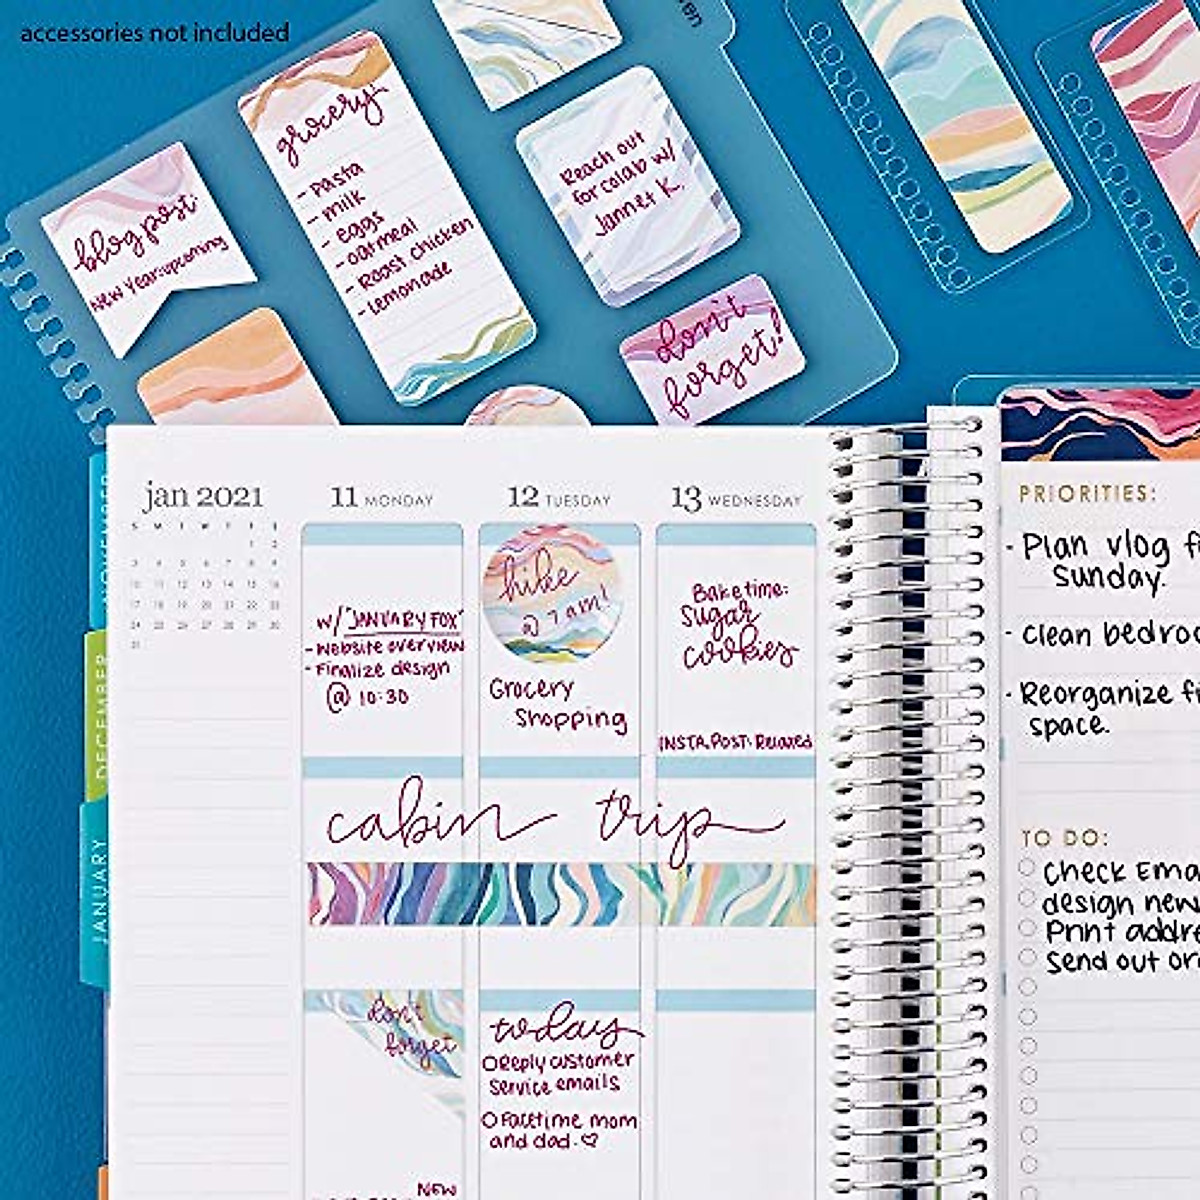 accessories not included
grocery:
- Pasta
- milk
- eggs
- oatmeal
- Roast Chicken
- Lemonade
blog post:
New Year:upcoming
Reach out
for colab w/
Jannet K.
don't
forget!
jan 2021
S M T W T F S
1 2
3 4 5 6 7 8 9
10 11 12 13 14 15 16
17 18 19 20 21 22 23
24 25 26 27 28 29 30
31
11 MONDAY
12 TUESDAY
13 WEDNESDAY
w/ "JANUARY FOX"
- Website overview
- Finalize design
@ 10:30
hike
@ 7am!
Grocery
Shopping
Bake time:
Sugar
cookies
INSTA POST: Relaxed
cabin trip
don't
forget
today
Reply customer
Service emails
Facetime mom
and dad. ♡
NEW
NOVEMBER
DECEMBER
JANUARY
PRIORITIES:
- Plan vlog
Sunday.
- Clean
- Reorganize
space.
TO DO:
Check
design new
Print
Send out